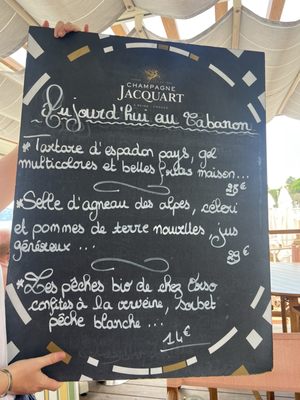 CHAMPAGNE
JACQUART
Aujourd'hui au Cabanon
* Tartare d'espadon pays, gel
multicolores et belles frites maison...
25€
* Selle d'agneau des alpes, céleri
et pommes de terre nouvelles, jus
généreux...
39€
* Les pêches bio de chez
confites à la verveine, sorbet
pêche blanche...
14€